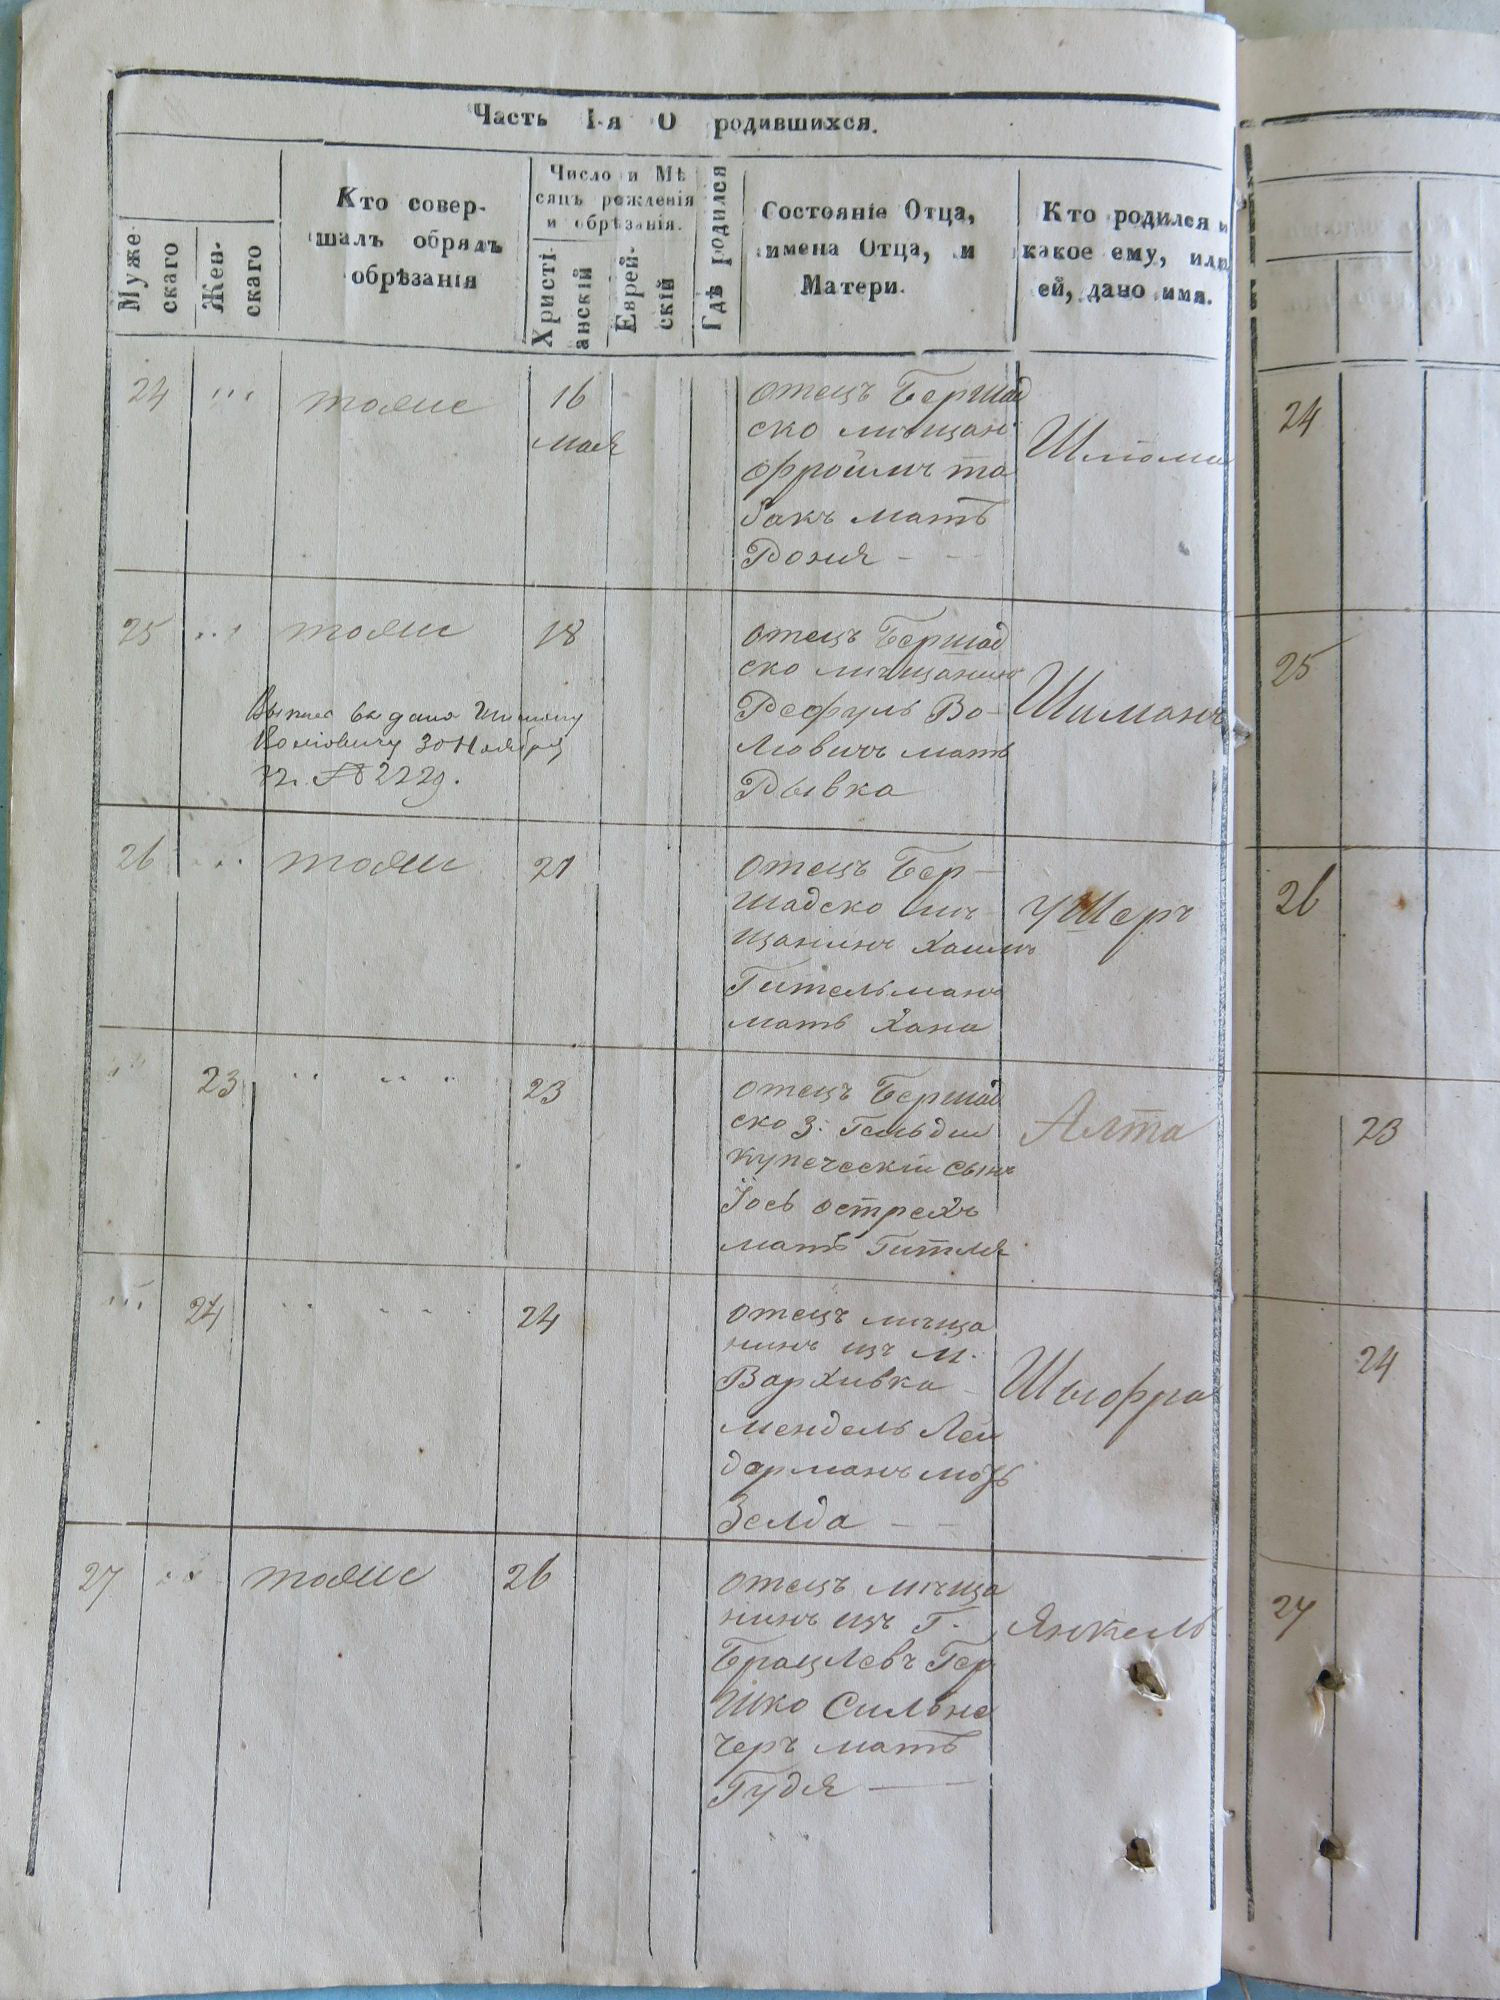 Часть I-я О родившихся.
Муже-
скаго
Жен-
скаго
Кто совер-
шалъ обрядъ
обрѣзанія
Число и Мѣ
сяцъ рожденія
и обрѣзанія.
Христі-
анскій
Еврей-
скій
Гдѣ родился
Состояніе Отца,
имена Отца, и
Матери.
Кто родился и
какое ему, или
ей, дано имя.
24 тояже 16
мая
отецъ Бершад
ско мещан
Фройимъ та
бакъ мать
Рохля
Шлома
24
25 тояже 18
отецъ Бершад
ско мещанин
Рефуль Во-
лювичъ мать
Рывка
Шиманъ
25
30 Ноября
№ 2229.
26 тояже 21
отецъ Бер-
шадско мѣ
щанинъ Хаимъ
Гительманъ
мать Хана
Ушеръ
26
23 23
отецъ Бершад
ско 3. Гильдии
купеческій сынъ
Іось острехъ
мать Гитля
Алта
23
24 24
отецъ мѣща
нинъ изъ м.
Вархивка
Мендель Лен
дарманъ
Зелда
Шыфра
24
27 тояже 26
отецъ мѣща
нинъ изъ г.
Брацлевъ Гер
шко Сильне
черъ мать
Гудя
Янкель
27